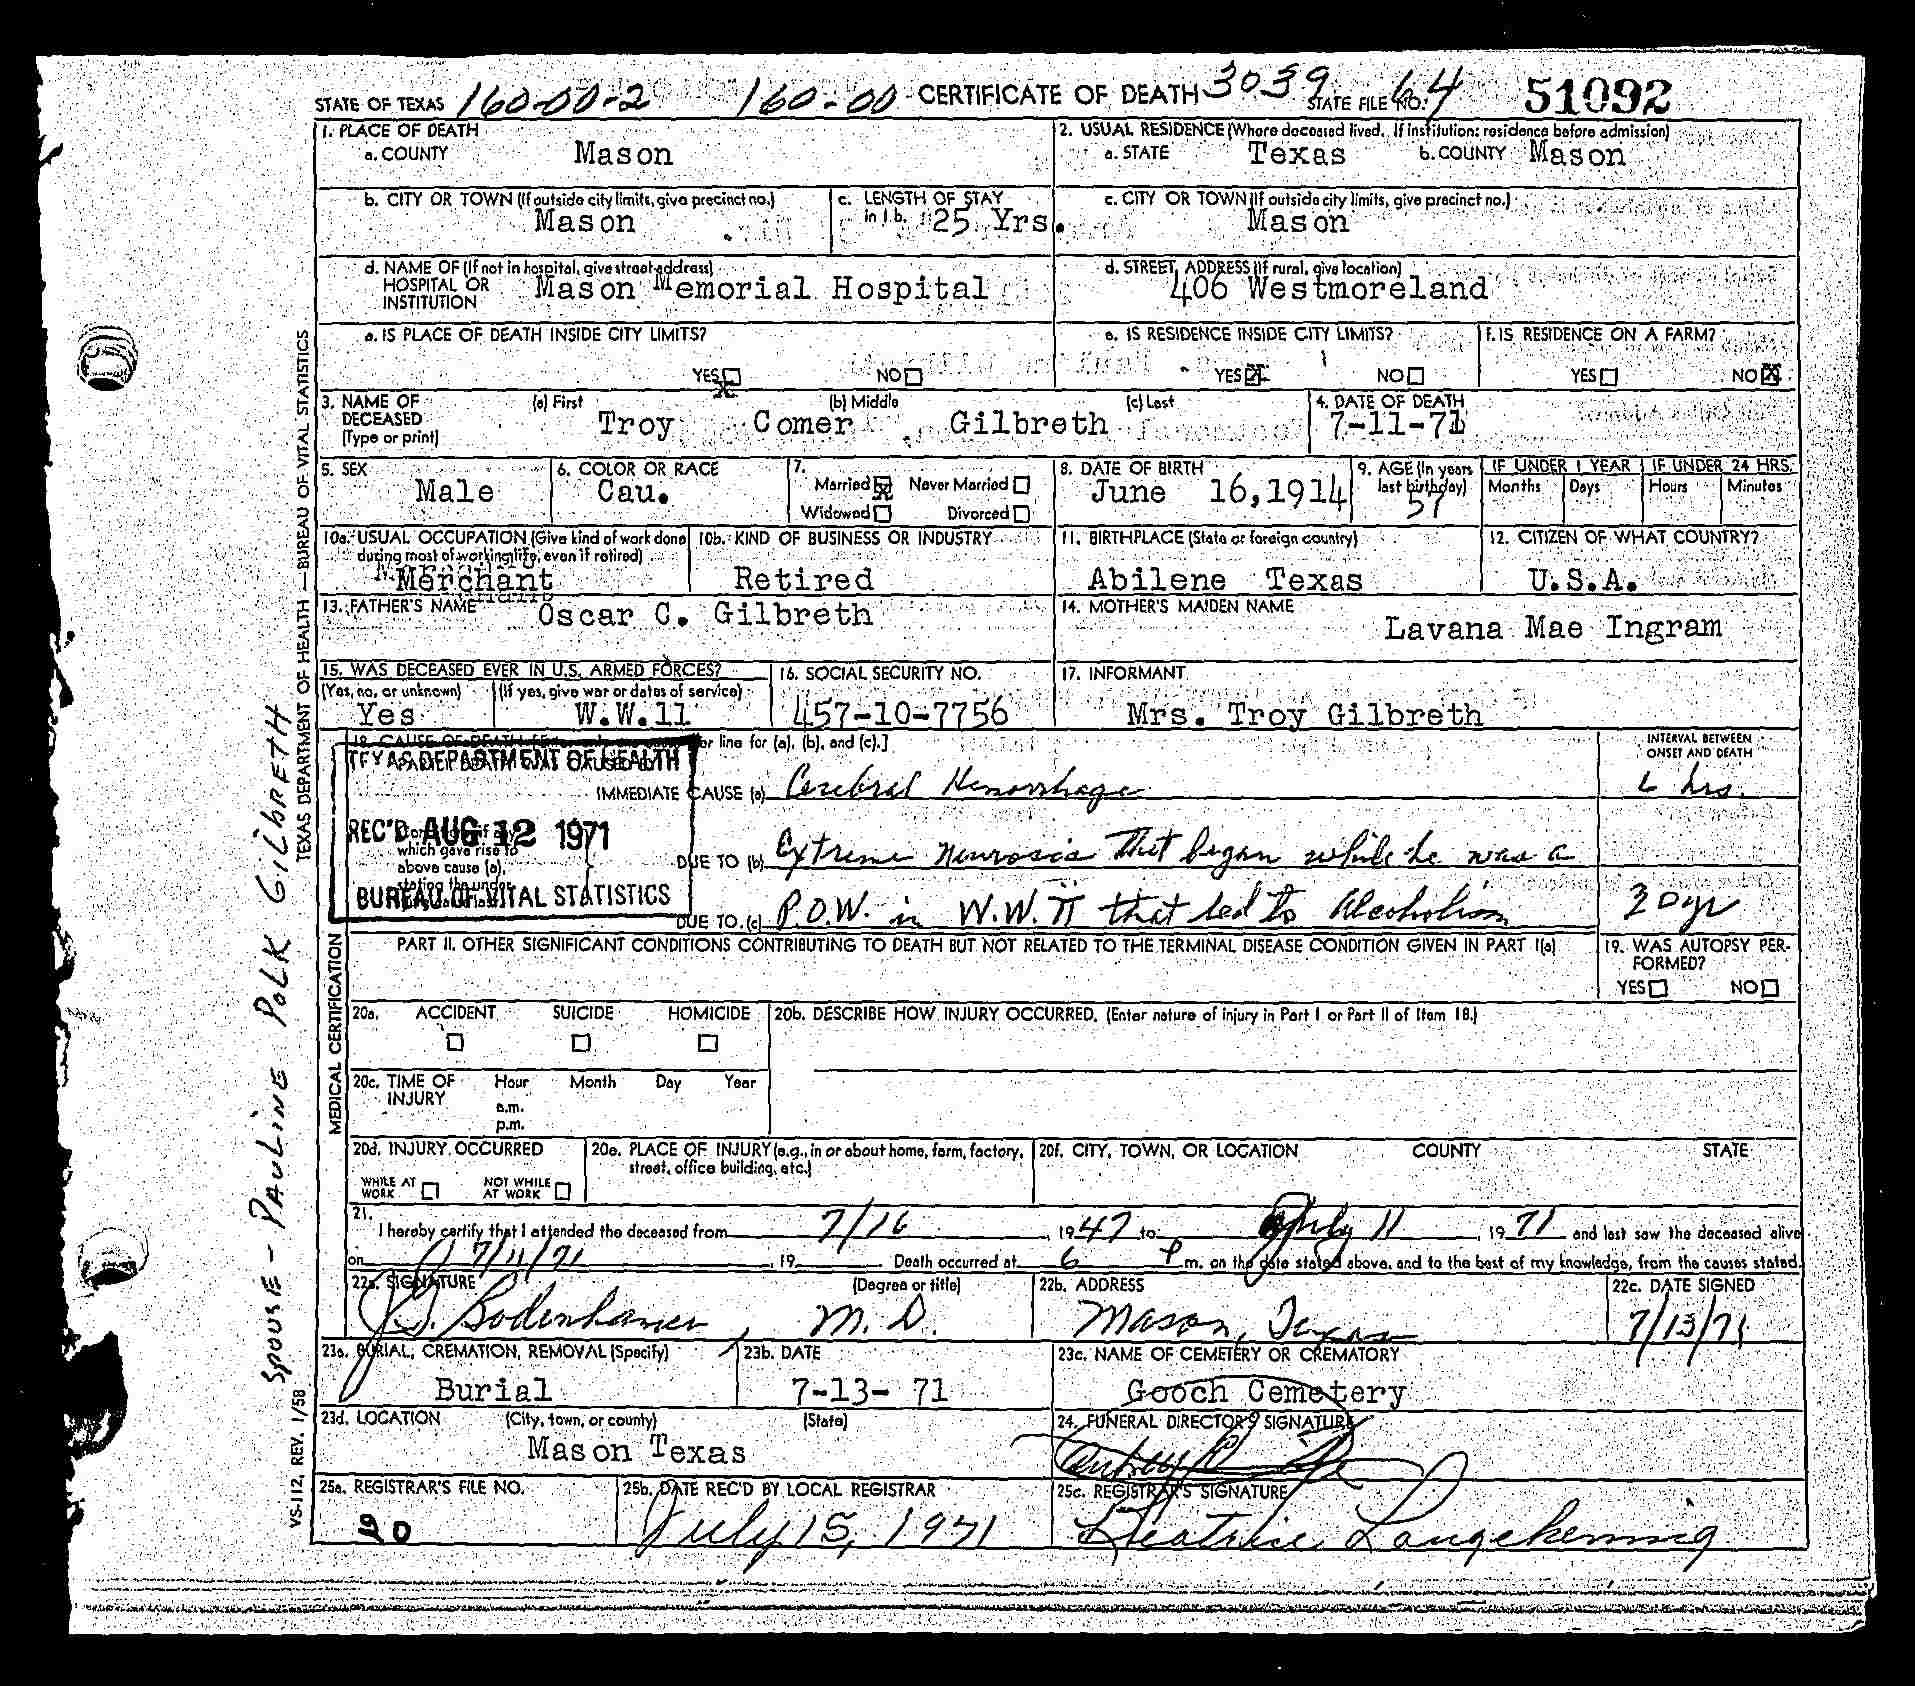 STATE OF TEXAS 160-00-2 160-00- CERTIFICATE OF DEATH 3039 STATE FILE NO. 64 51092
1. PLACE OF DEATH
a. COUNTY Mason
2. USUAL RESIDENCE (Where deceased lived. If institution: residence before admission)
a. STATE Texas b. COUNTY Mason
b. CITY OR TOWN (If outside city limits, give precinct no.) Mason
c. LENGTH OF STAY in 1b. 25 Yrs.
c. CITY OR TOWN (If outside city limits, give precinct no.) Mason
d. NAME OF (If not in hospital, give street address) HOSPITAL OR INSTITUTION Mason Memorial Hospital
d. STREET ADDRESS (If rural, give location) 406 Westmoreland
e. IS PLACE OF DEATH INSIDE CITY LIMITS?
YES X NO
e. IS RESIDENCE INSIDE CITY LIMITS?
YES X NO
f. IS RESIDENCE ON A FARM?
YES NO X
3. NAME OF DECEASED (Type or print)
(a) First Troy (b) Middle Comer (c) Last Gilbreth
4. DATE OF DEATH 7-11-71
5. SEX Male
6. COLOR OR RACE Cau.
7. Married X Never Married
Widowed Divorced
8. DATE OF BIRTH June 16,1914
9. AGE (In years last birthday) 57
IF UNDER 1 YEAR Months Days
IF UNDER 24 HRS. Hours Minutes
10a. USUAL OCCUPATION (Give kind of work done during most of working life, even if retired) Merchant
10b. KIND OF BUSINESS OR INDUSTRY Retired
11. BIRTHPLACE (State or foreign country) Abilene Texas
12. CITIZEN OF WHAT COUNTRY? U.S.A.
13. FATHER'S NAME Oscar C. Gilbreth
14. MOTHER'S MAIDEN NAME Lavana Mae Ingram
15. WAS DECEASED EVER IN U.S. ARMED FORCES?
(Yes, no, or unknown) Yes (If yes, give war or dates of service) W.W.11
16. SOCIAL SECURITY NO. 457-10-7756
17. INFORMANT Mrs. Troy Gilbreth
18. CAUSE OF DEATH line for (a), (b), and (c).]
INTERVAL BETWEEN ONSET AND DEATH
TEXAS DEPARTMENT OF HEALTH
REC'D AUG 12 1971
BUREAU OF VITAL STATISTICS
IMMEDIATE CAUSE (a) Cerebral Hemorrhage 6 hrs.
which gave rise to
above cause (a),
DUE TO (b) Extreme neurosis that began while he was a
DUE TO (c) P.O.W. in W.W. II that led to Alcoholism
PART II. OTHER SIGNIFICANT CONDITIONS CONTRIBUTING TO DEATH BUT NOT RELATED TO THE TERMINAL DISEASE CONDITION GIVEN IN PART I(a)
19. WAS AUTOPSY PERFORMED?
YES NO
20a. ACCIDENT SUICIDE HOMICIDE
20b. DESCRIBE HOW INJURY OCCURRED. (Enter nature of injury in Part I or Part II of Item 18.)
20c. TIME OF INJURY Hour Month Day Year
a.m.
p.m.
20d. INJURY OCCURRED
WHILE AT WORK NOT WHILE AT WORK
20e. PLACE OF INJURY (e.g., in or about home, farm, factory, street, office building, etc.)
20f. CITY, TOWN, OR LOCATION COUNTY STATE
21. I hereby certify that I attended the deceased from 7/16, 1947 to July 11, 1971 and last saw the deceased alive
on 7/11/71, 19 Death occurred at 6 P m. on the date stated above, and to the best of my knowledge, from the causes stated.
22a. SIGNATURE (Degree or title) J. Bodenhamer, M.D.
22b. ADDRESS Mason, Texas
22c. DATE SIGNED 7/13/71
23a. BURIAL, CREMATION, REMOVAL (Specify) Burial
23b. DATE 7-13- 71
23c. NAME OF CEMETERY OR CREMATORY Gooch Cemetery
23d. LOCATION (City, town, or county) (State) Mason Texas
24. FUNERAL DIRECTOR'S SIGNATURE
25a. REGISTRAR'S FILE NO. 20
25b. DATE REC'D BY LOCAL REGISTRAR July 15, 1971
25c. REGISTRAR'S SIGNATURE Beatrice Langehennig
MEDICAL CERTIFICATION
VS-112, REV. 1/58
TEXAS DEPARTMENT OF HEALTH — BUREAU OF VITAL STATISTICS
SPOUSE - PAULINE POLK GILBRETH